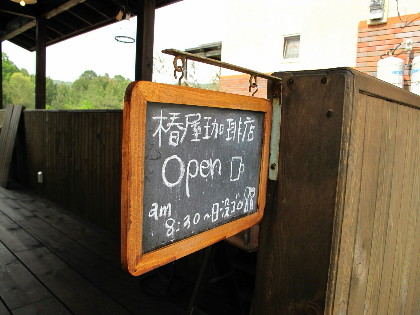 椿屋珈琲店
Open
am
8:30〜日没ゴロ